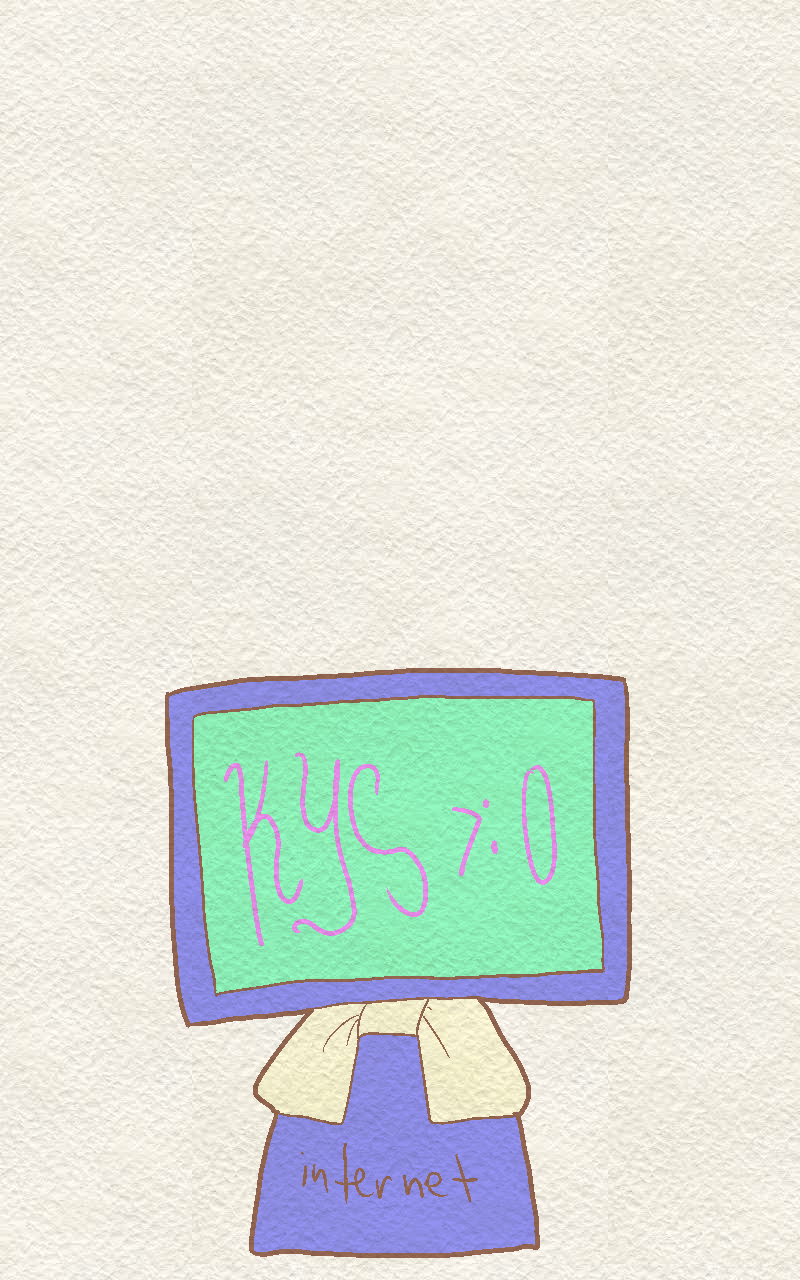 KYS >:0
internet